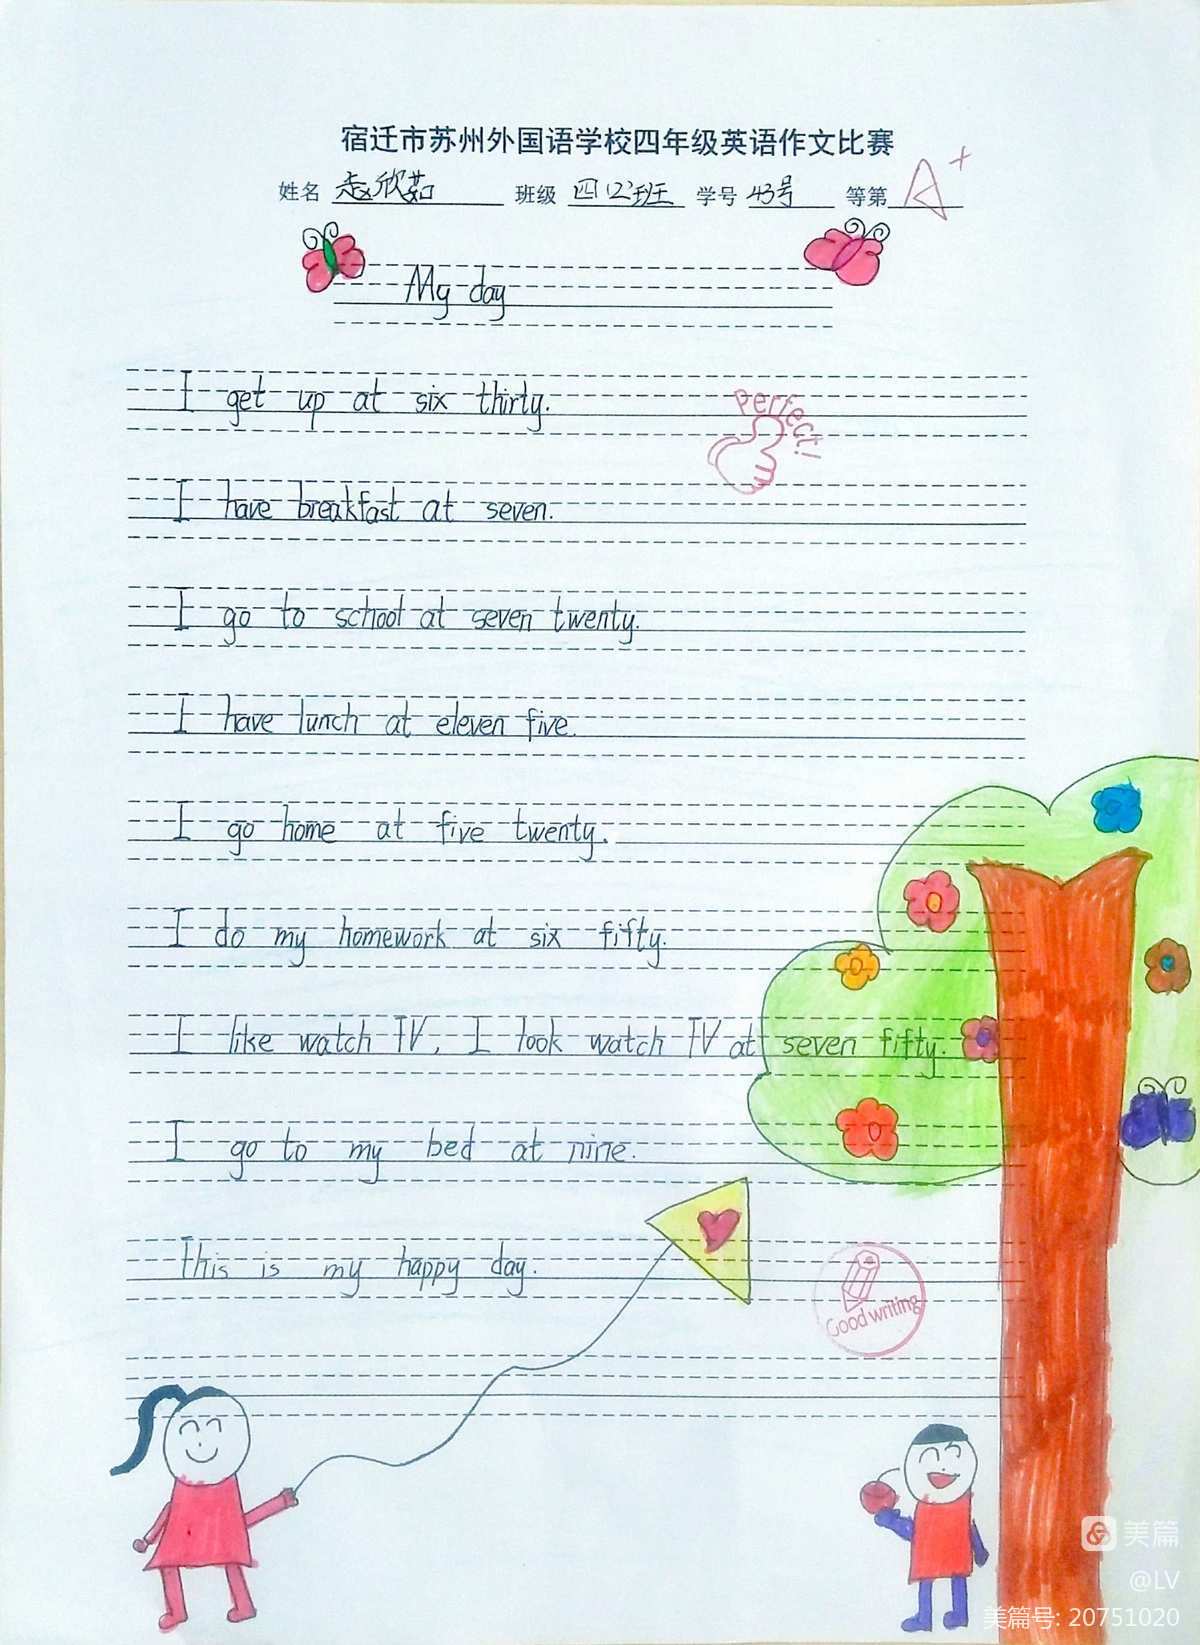 宿迁市苏州外国语学校四年级英语作文比赛
姓名 赵欣茹 班级 四(2)班 学号 43号 等第 A+
My day
I get up at six thirty.
Perfect!
I have breakfast at seven.
I go to school at seven twenty.
I have lunch at eleven five.
I go home at five twenty.
I do my homework at six fifty.
I like watch TV, I look watch TV at seven fifty.
I go to my bed at nine.
This is my happy day.
Good writing
美篇
@LV
美篇号: 20751020